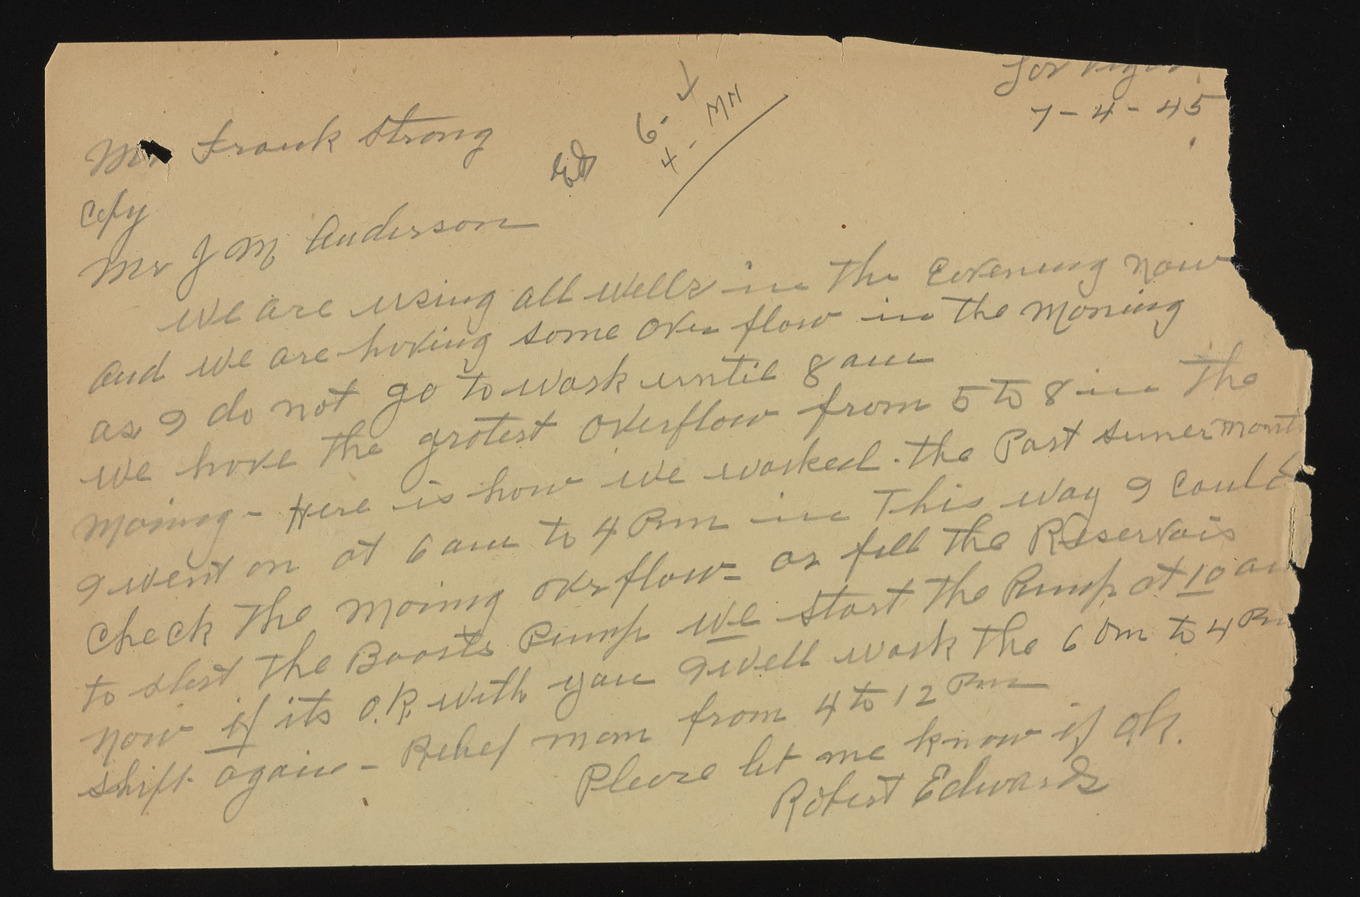 Las Vegas
7-4-45
6- 4
4- MN
Mr Frank Strong
Copy
Mr J M Anderson
We are using all wells in the Evening now
and we are having some over flow in the Moning
as I do not go to work until 8 am
we have the gratest overflow from 5 to 8 in the
Moning - Here is how we worked. the Past sumer month
I went on at 6 am to 4 Pm in This way I could
check the Moning overflow - or fill the Reservois
to start the Boosts Pump we start the Pump at 10 am
now if its O.K. with you I well work the 6 am to 4 Pm
shift again - Relief man from 4 to 12 Pm
Please let me know if Ok.
Robert Edwards